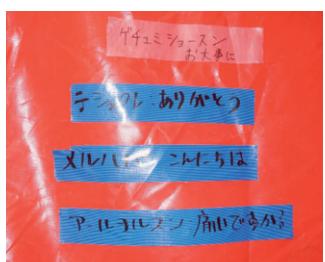 ゲチュミショースン
お大事に
テシェクレ ありがとう
メルハバ こんにちは
アールヨルスン 痛いですか?